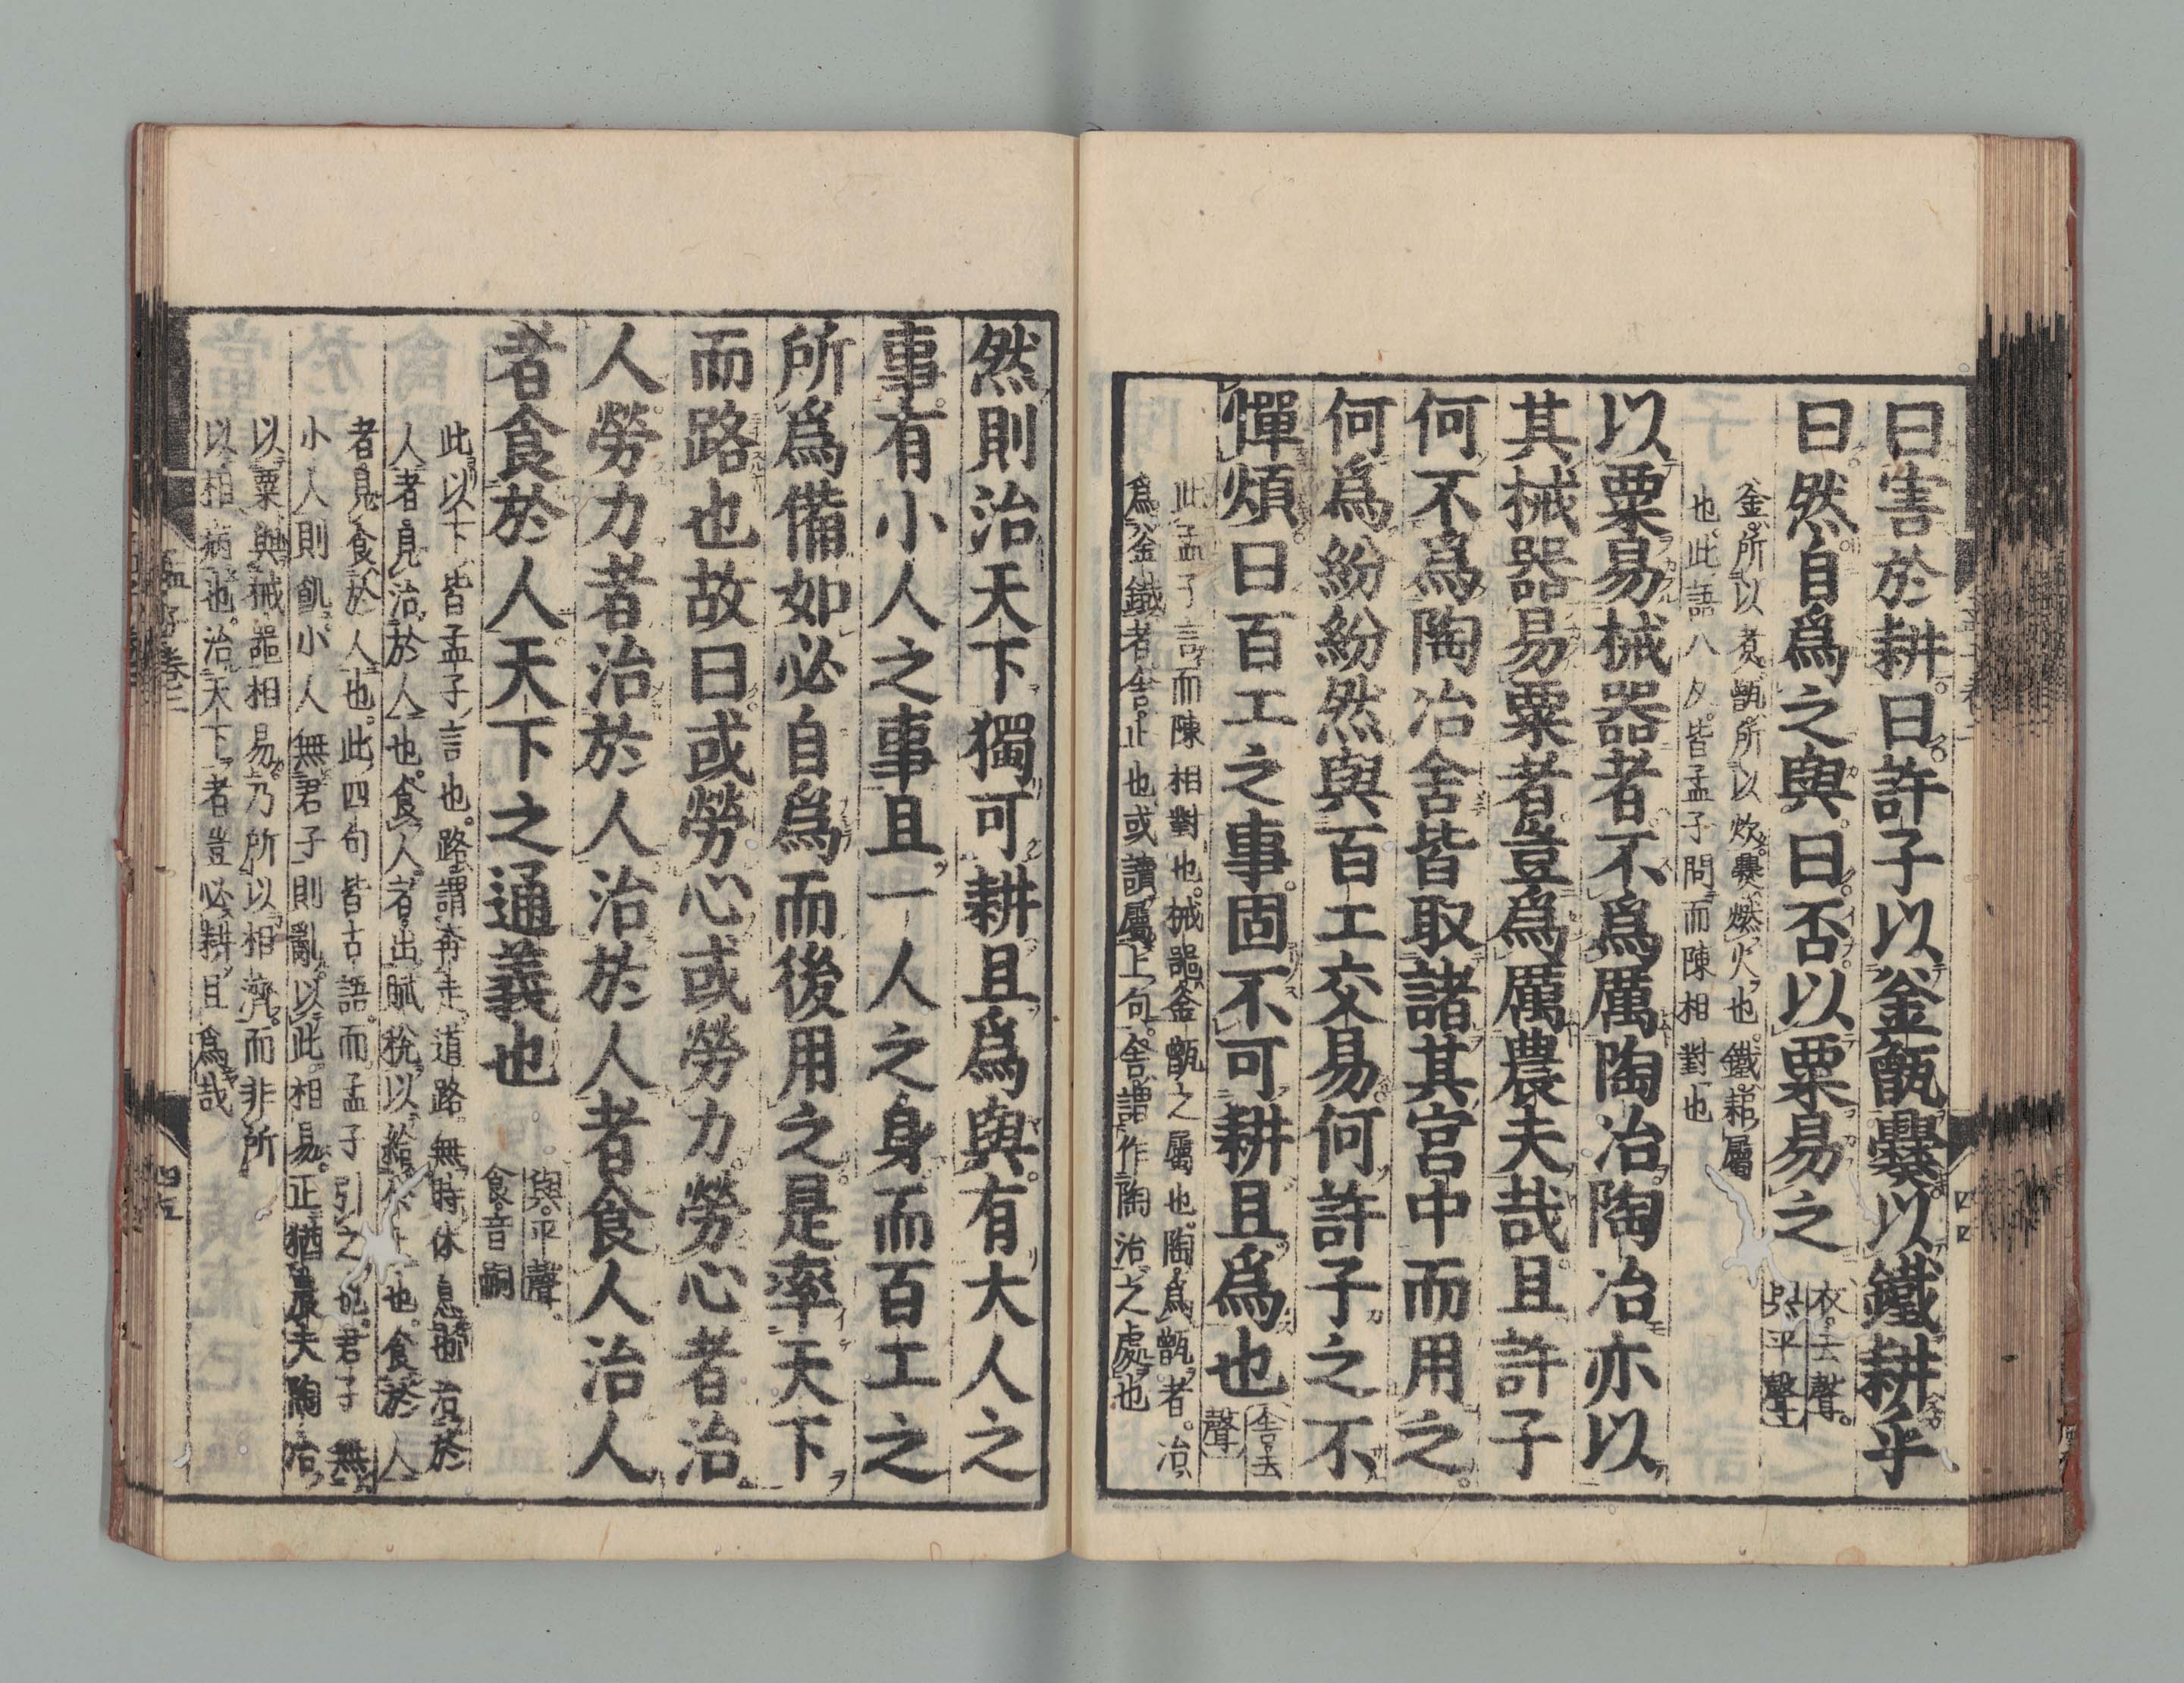 曰害於耕曰許子以釜甑爨以鐵耕乎
曰然自爲之與曰否以粟易之
衣去聲
與平聲
釜所以煮甑所以炊爨燃火也鐵耜屬
也此語八反皆孟子問而陳相對也
以粟易械器者不爲厲陶冶陶冶亦以
其械器易粟者豈爲厲農夫哉且許子
何不爲陶冶舍皆取諸其宮中而用之
何爲紛紛然與百工交易何許子之不
憚煩曰百工之事固不可耕且爲也
舍去
聲
此孟子言而陳相對也械器釜甑之屬也陶爲甑者冶
爲釜鐵者舍止也或讀屬上句舍謂作陶冶之處也
然則治天下獨可耕且爲與有大人之
事有小人之事且一人之身而百工之
所爲備如必自爲而後用之是率天下
而路也故曰或勞心或勞力勞心者治
人勞力者治於人治於人者食人治人
者食於人天下之通義也
與平聲
食音嗣
此以下皆孟子言也路謂奔走道路無時休息也治於
人者見治於人也食人者出賦稅以給公上也食於人
者見食於人也此四句皆古語而孟子引之也君子無
小人則飢小人無君子則亂以此相易正猶農夫陶冶
以粟與械器相易乃所以相濟而非所
以相病也治天下者豈必耕且爲哉
孟子卷三
四五